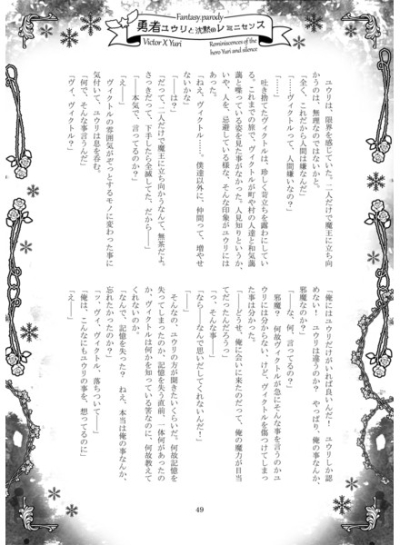 Fantasy.parody
勇者ユウリと沈黙のレミニセンス
Victor X Yuri
Reminiscences of the
hero Yuri and silence
ユウリは、限界を感じていた。二人だけで魔王に立ち向
かうのは、無理なのではないかと。
「全く、これだから人間は嫌なんだ」
「……ヴィクトルって、人間嫌いなの？」
吐き捨てたヴィクトルは、珍しく苛立ちを露わにしてい
る。これまでの旅で、ヴィクトルが町や村の人達と和気藹
藹と喋っている姿を見た事がなかった。人見知りというか、
いや、人を、忌避している様な、そんな印象がユウリには
あった。
「ねえ、ヴィクトル……。僕達以外に、仲間って、増やせ
ないかな」
「――はっ？」
「だって、二人だけで魔王に立ち向かうなんて、無茶だよ。
さっきだって、下手したら全滅してた。だから――」
「――本気で、言ってるのか？」
「え――」
ヴィクトルの雰囲気がぞっとするモノに変わった事に
気付いて、ユウリは息を呑む。
「何で、そんな事言うんだ」
「ヴィ、ヴィクトル？」
「俺にはユウリだけがいれば良いんだ！　ユウリしか認
めない！　ユウリは違うのか？　やっぱり、俺の事なんか、
邪魔なのか？」
「――な、何、言ってるの？」
邪魔？　何故ヴィクトルが急にそんな事を言うのかユ
ウリには分からない。けど、ヴィクトルを傷つけてしまっ
た事は分かった。
「――どうせ、俺に会いに来たのだって、俺の魔力が目当
てだったんだろうっ」
「っ、そんな事――」
「なら――なんで思いだしてくれないんだ！」
そんなの、ユウリの方が聞きたいくらいだ。何故記憶を
失ってしまったのか、記憶を失う直前、一体何があったの
か。ヴィクトルは何かを知っている筈なのに、何故教えて
くれないのか。
「なんで、記憶を失った？　ねえ、本当は俺の事なんか、
忘れたかったのか？」
「ッ、ヴィ、ヴィクトル、落ちついて――」
「俺は、こんなにもユウリの事を、想ってるのに」
「え――」
49